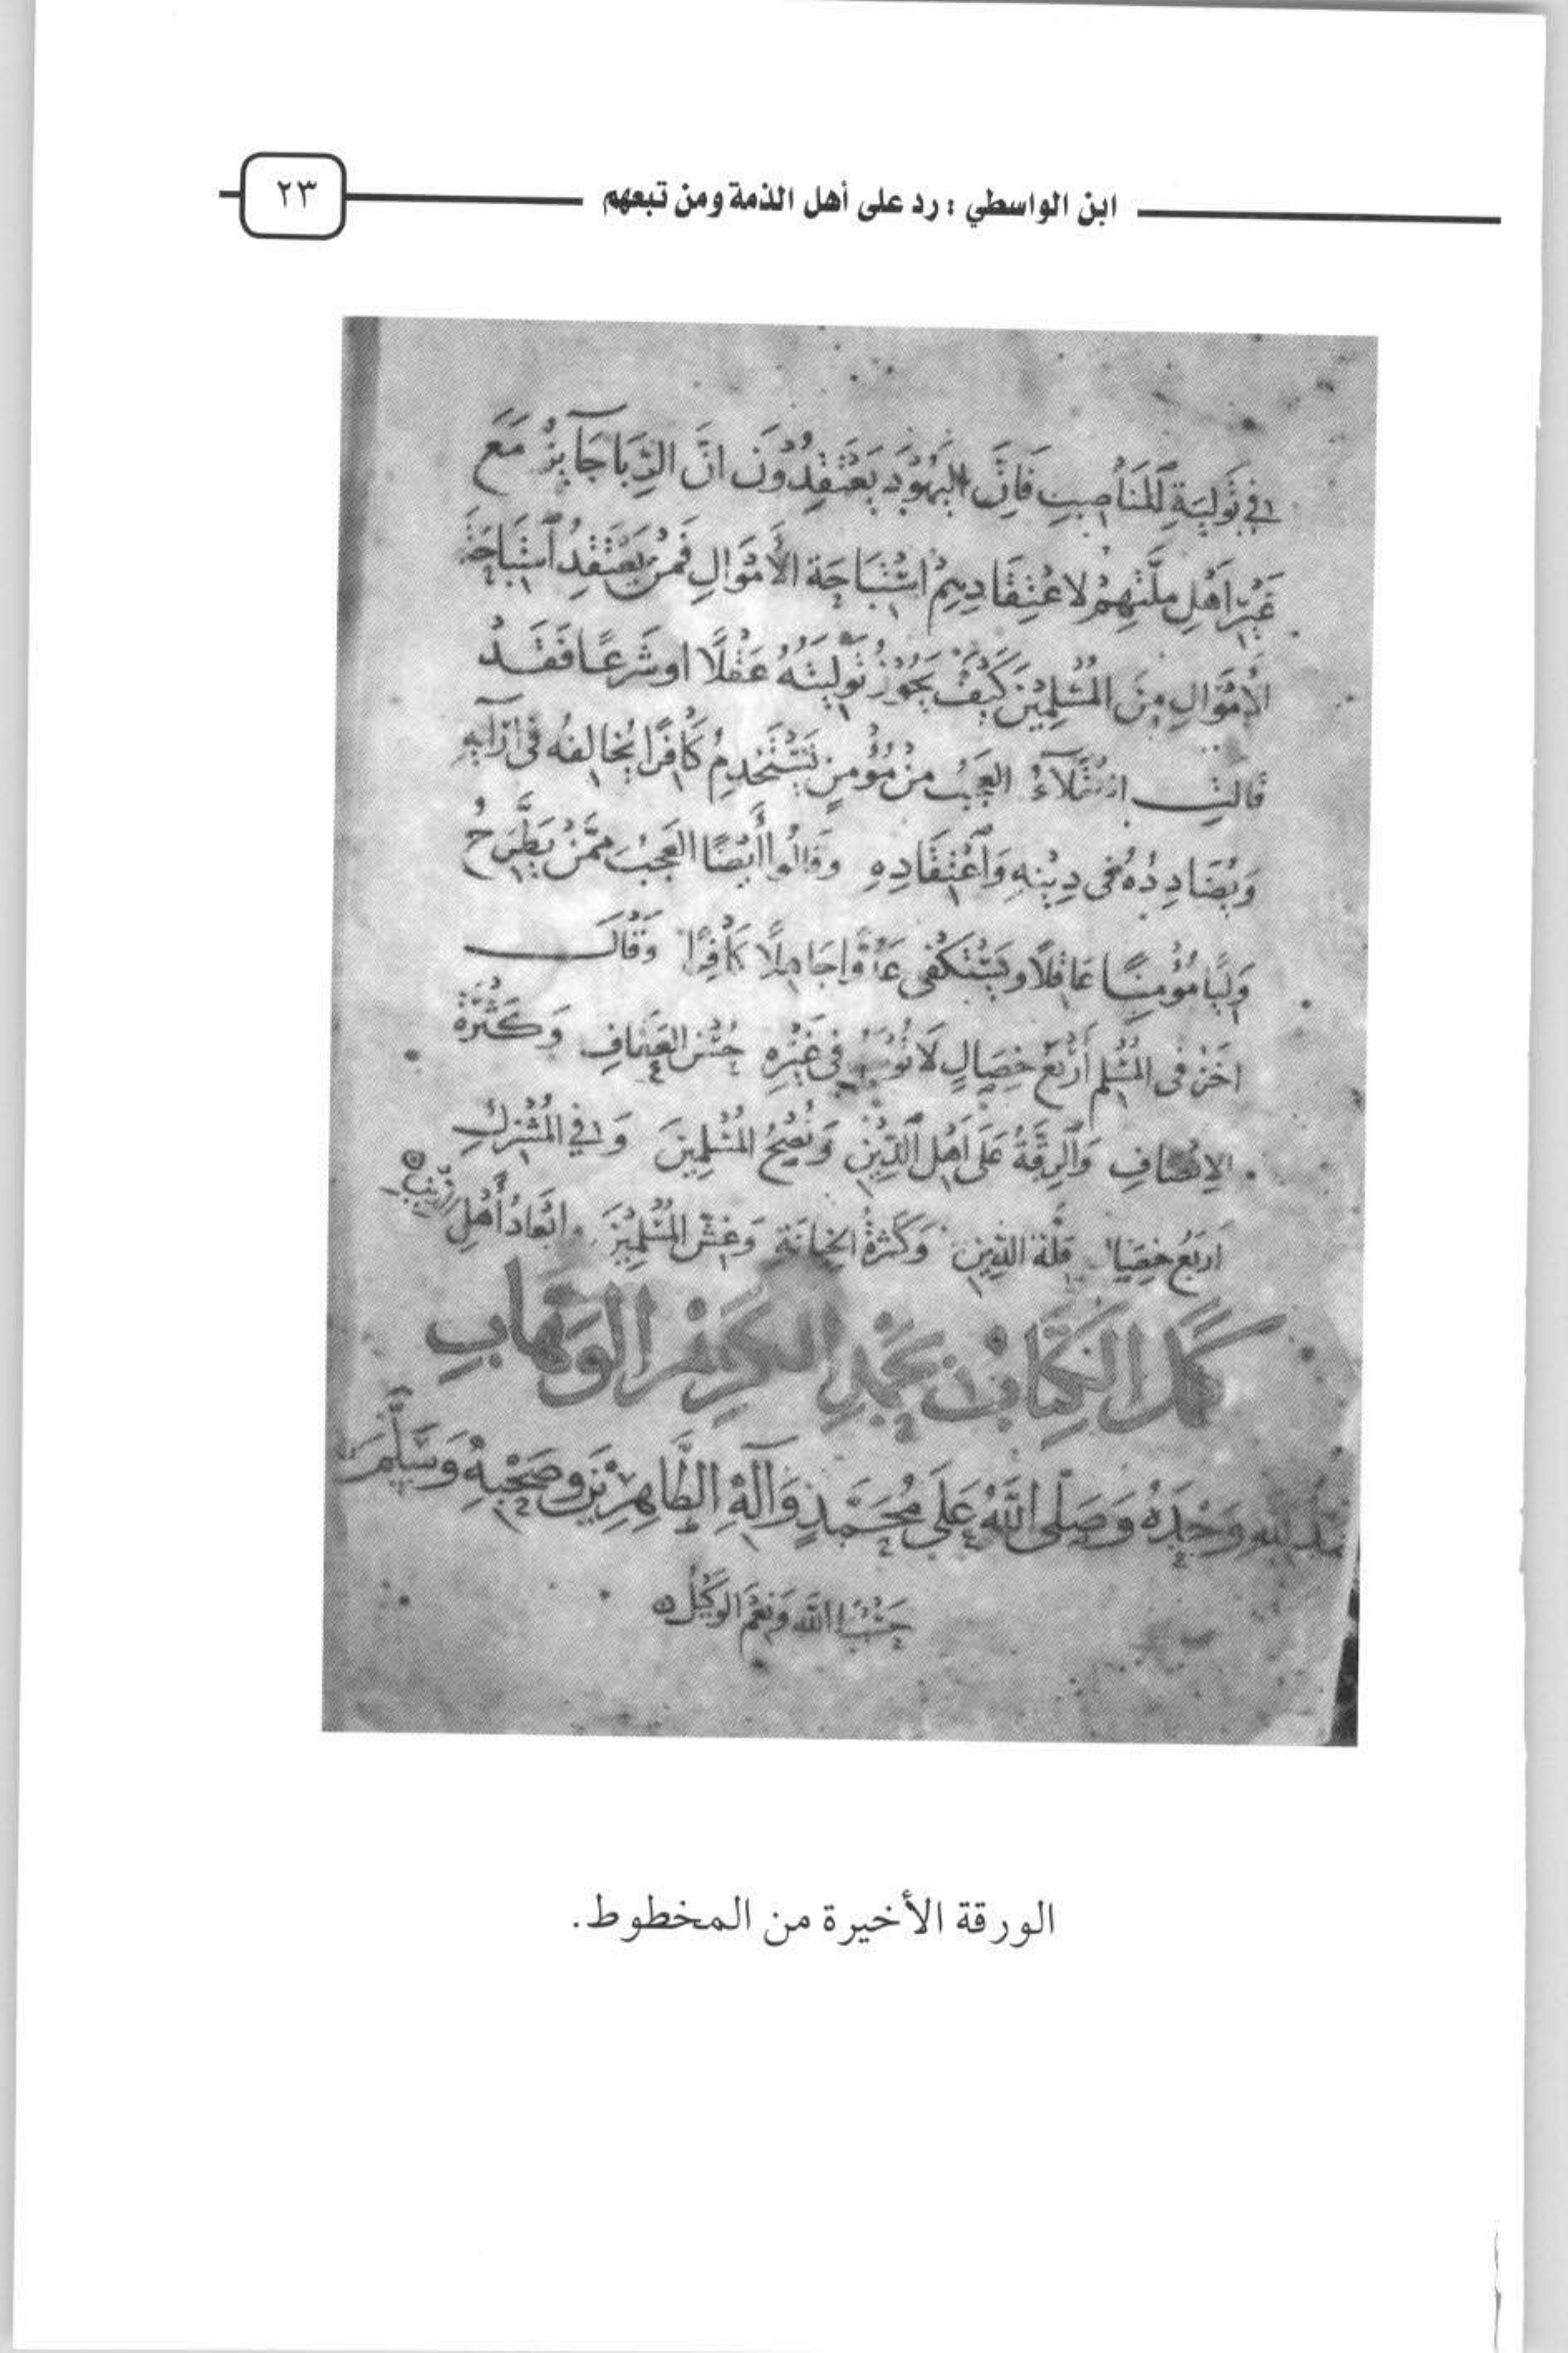 ابن الواسطي : رد على أهل الذمة ومن تبعهم
٢٣
في تَوليَةِ المَنَاصِبِ فَاِنَّ اليَهُوْدَ يَعْتَقِدُوْنَ انَّ الرِّبَا جَآيزُ مَعَ
غَيْرِ اَهْلِ مِلَّتِهِمْ لاعْتِقَادِهِمْ اسْتِبَاحَة الأَمْوَالِ فَمَنْ يَعْتَقِدُ اسْتِبَاحَة
الأَمْوَالِ مِنَ المُسْلِمِيْنَ كَيْفَ يَجُوْزُ تَوْلِيَتُهُ عَقْلًا اوشَرعًا فَقَدْ
قالت العجبُ مِنْ مُؤْمنٍ يَسْتَخْدِمُ كَافِرًا يُخالِفهُ فى ارآيهِ
وَيُضَادِدُهُ فى دِيْنِهِ وَاعْتِقَادِهِ وَقالُوا أَيْضًا العَجَبُ مِمَّنْ يَطَّرِحُ
وَليًّا مُؤْمِنًا عَاقِلًا وَيَسْتَكْفى عَدُوًّا جَاهِلًا كَافِرًا وَقَالَ
آخَرُ فى المُسْلمِ أَرْبَعُ خِصَالٍ لَا في غَيْرِهِ حُسْنُ العَفَافِ وَكَثْرَةُ
الإِنْصَافِ وَالرِقَّةُ عَلَى اَهْلِ الدِّيْنِ وَنُصْحُ المُسْلِمِينَ وَفي المُشْرِكِ
اَربَعُ خِصَال قلَّة الدِّينِ وَكَثْرَةُ الخِيَانَةِ وَغِشّ المُسْلِمِيْنَ وابْعَادُ أَهْلِ الدّينِ
كَمُلَ الكِتَابُ بِحَمْدِ الكَرِيْمِ الوَهَّابِ
لله وَحْدَهُ وَصَلَّى اللَّهُ عَلَى مُحَمَّدٍ وَآلِهِ الطَّاهِرِيْنَ وصَحْبِهِ وَسَلَّمَ
حَسْبُنَا اللَّه وَنِعْمَ الوَكِيْل
الورقة الأخيرة من المخطوط.